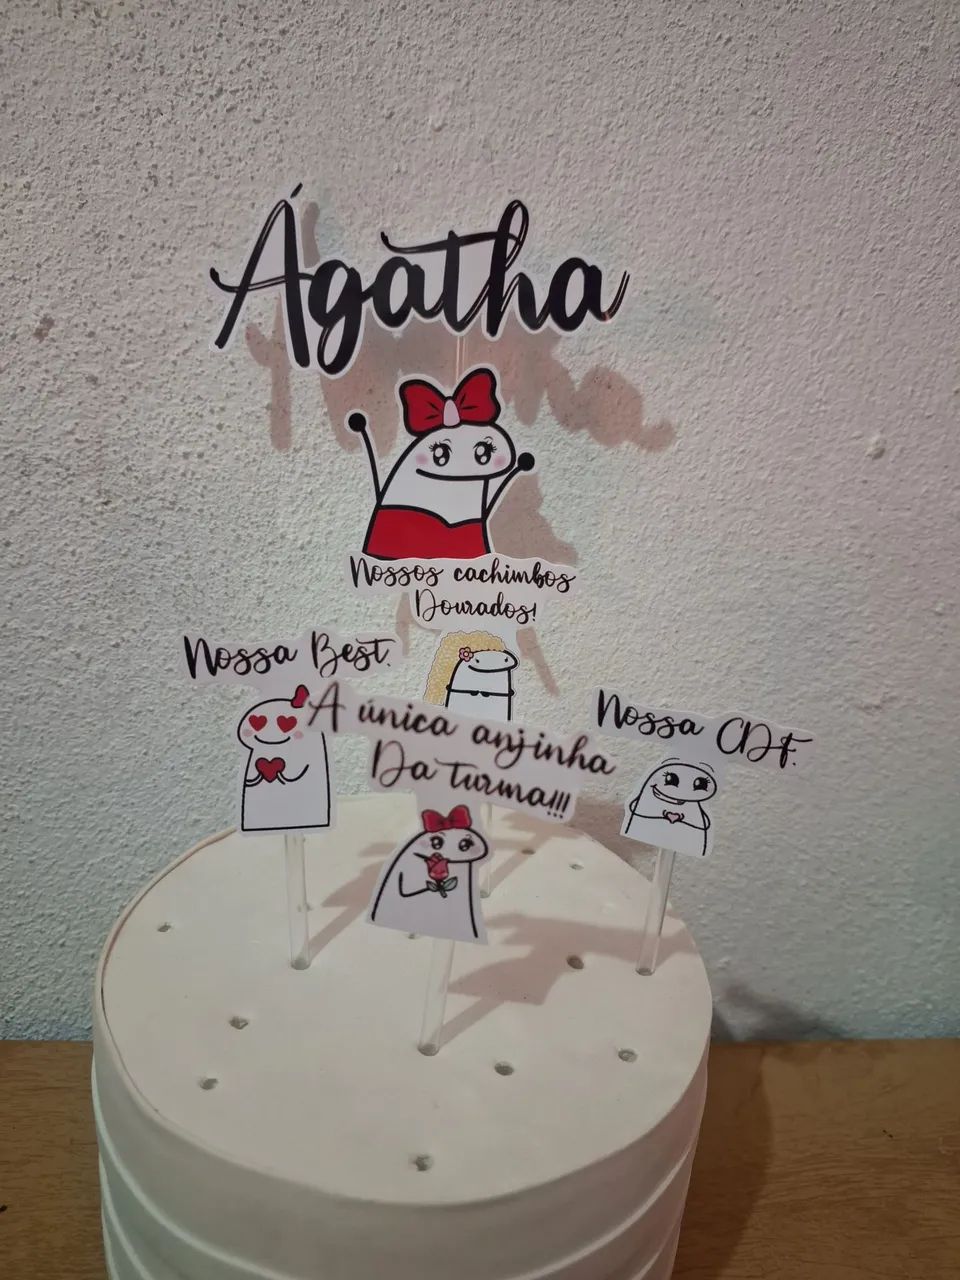 Ágatha
Nossos cachimbos
Dourados!
Nossa Best.
A única anjinha
Da turma!!!
Nossa CDF.